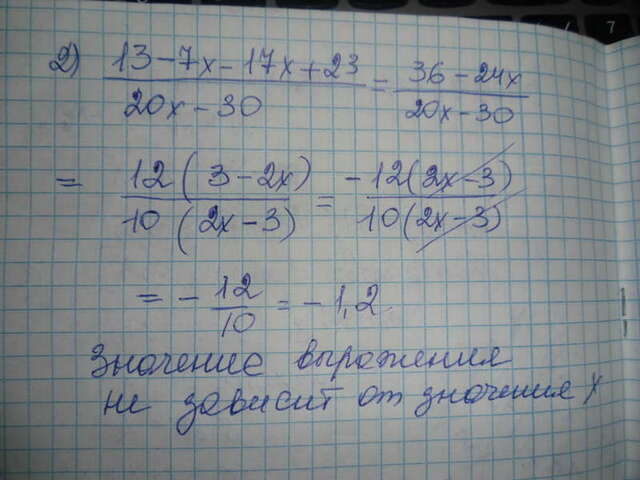 2) (13-7x-17x+23)/(20x-30) = (36-24x)/(20x-30)
= 12(3-2x)/10(2x-3) = -12(2x-3)/10(2x-3)
= -12/10 = -1,2.
Значение выражения
не зависит от значения x